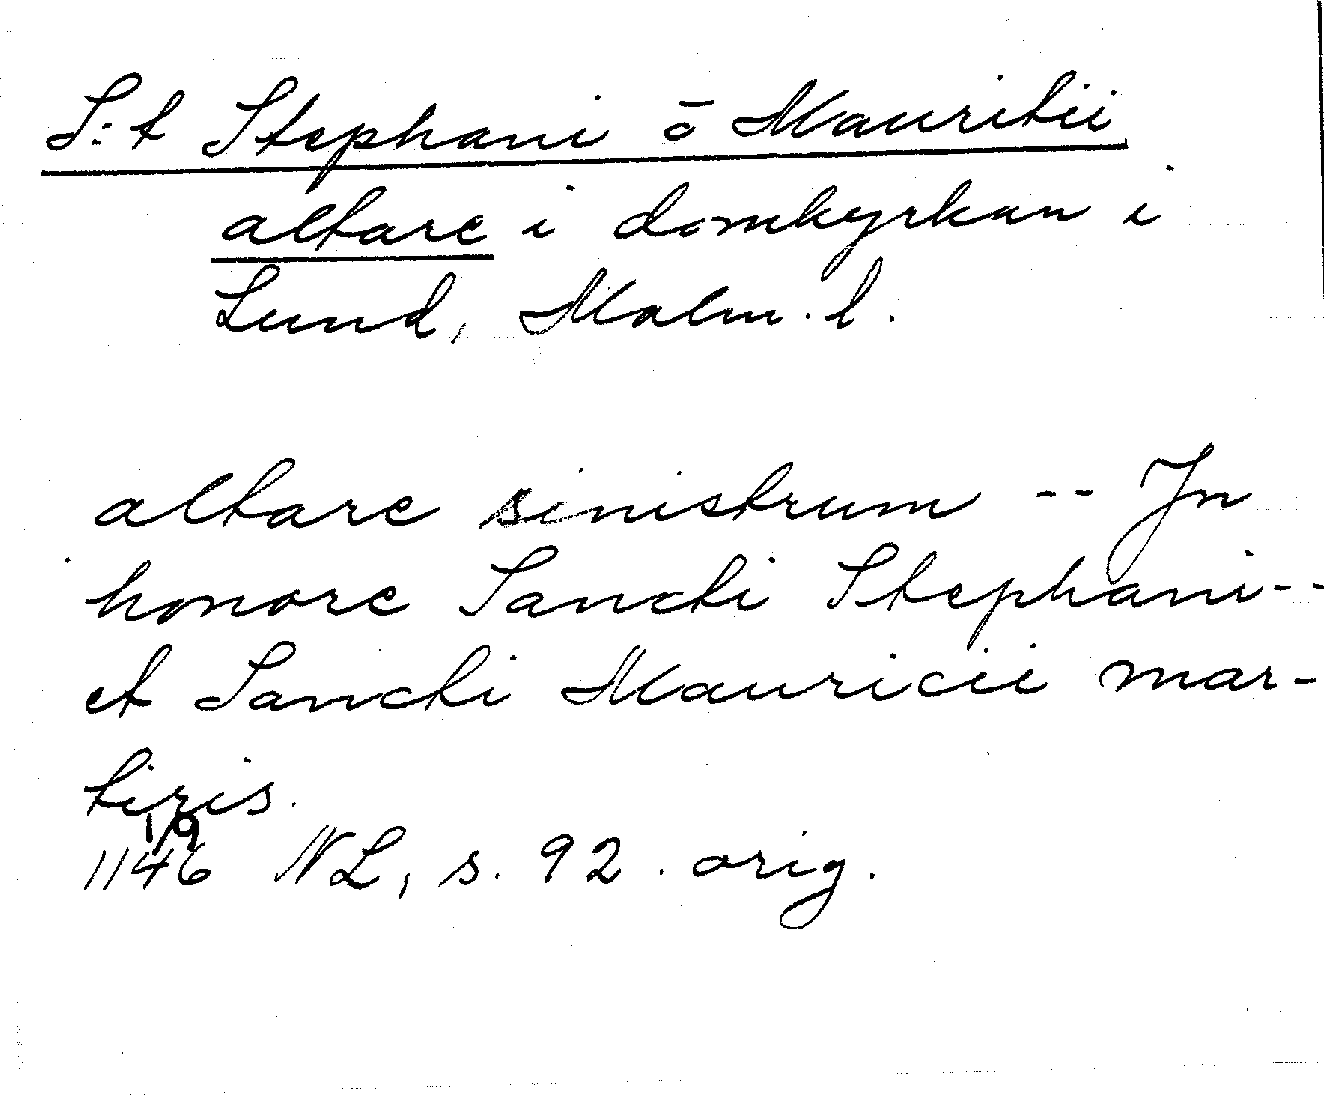 S:t Stephani ō Mauritii
altare i domkyrkan i
Lund, Malm. l.
altare sinistrum -- In
honore Sancti Stephani--
et Sancti Mauricii mar-
tiris.
1/9
1146 NL, s. 92. orig.